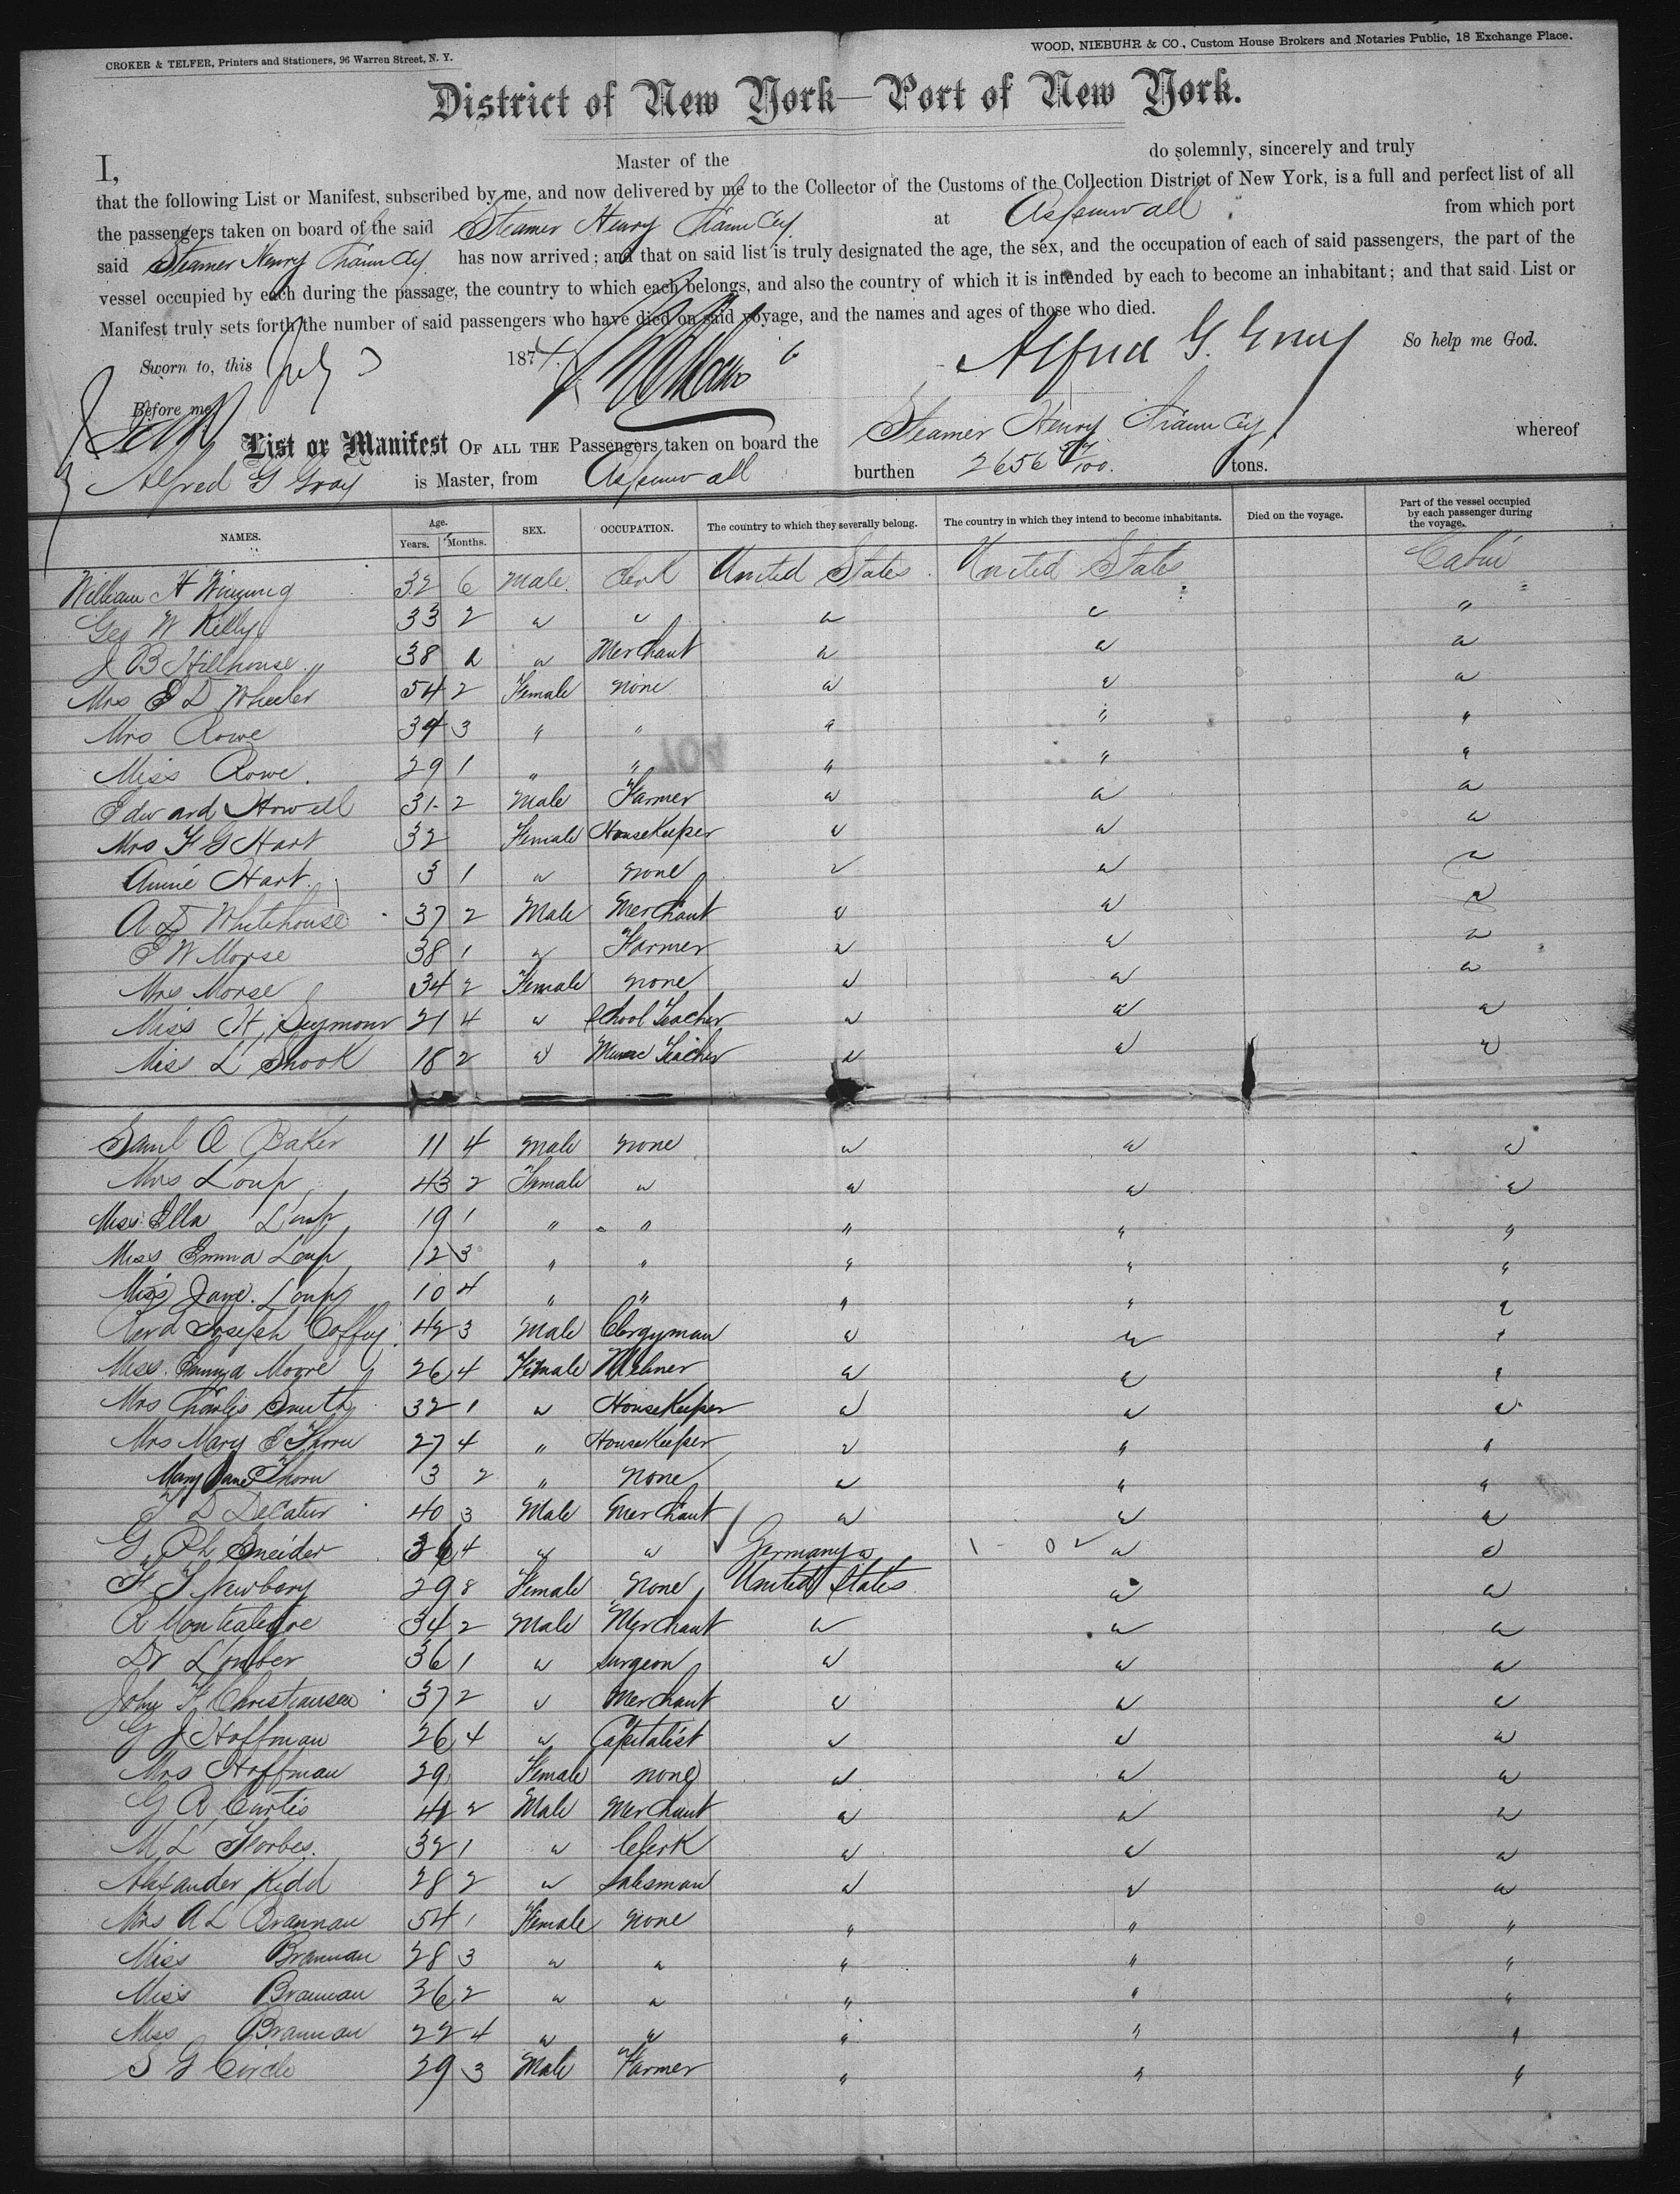 CROKER & TELFER, Printers and Stationers, 96 Warren Street, N. Y.
WOOD, NIEBUHR & CO., Custom House Brokers and Notaries Public, 18 Exchange Place.
District of New York—Port of New York.
I, Master of the do solemnly, sincerely and truly
that the following List or Manifest, subscribed by me, and now delivered by me to the Collector of the Customs of the Collection District of New York, is a full and perfect list of all
the passengers taken on board of the said Steamer Henry Chauncey at Aspinwall from which port
said Steamer Henry Chauncey has now arrived; and that on said list is truly designated the age, the sex, and the occupation of each of said passengers, the part of the
vessel occupied by each during the passage, the country to which each belongs, and also the country of which it is intended by each to become an inhabitant; and that said List or
Manifest truly sets forth the number of said passengers who have died on said voyage, and the names and ages of those who died.
Sworn to, this July 3 1874. Alfred G. Gray So help me God.
Before me,
List or Manifest OF ALL THE Passengers taken on board the Steamer Henry Chauncey whereof
Alfred G Gray is Master, from Aspinwall burthen 2656 /100. tons.
NAMES. Age. Years. Months. SEX. OCCUPATION. The country to which they severally belong. The country in which they intend to become inhabitants. Died on the voyage. Part of the vessel occupied by each passenger during the voyage.
William H 32 6 Male Clerk United States United States Cabin
Geo W Kelly 33 2 " " " " "
J B Hillhouse 38 " Merchant " " "
Mrs E D Wheeler 54 2 Female none " " "
Mrs Rowe 34 3 " " " " "
Miss Rowe. 29 1 " " " " "
Edward Howell 31 2 Male Farmer " " "
Mrs F G Hart 32 Female Housekeeper " " "
Annie Hart 3 1 " none " " "
A D Whitehouse 37 2 Male Merchant " " "
E W Morse 38 1 " Farmer " " "
Mrs Morse 34 2 Female none " " "
Miss H Seymour 21 4 " School Teacher " " "
Miss L Snook 18 2 " Music Teacher " " "
Saml O Baker 11 4 Male none " " "
Mrs Loup 43 2 Female " " " "
Miss Ella Loup 19 1 " " " " "
Miss Emma Loup 12 3 " " " " "
Miss Jane Loup 10 4 " " " " "
Revd Joseph Coffey 42 3 Male Clergyman " " "
Miss Emma Moore 26 4 Female Milliner " " "
Mrs Charles Smith 32 1 " Housekeeper " " "
Mrs Mary E Thorn 27 4 " Housekeeper " " "
Mary Jane Thorn 3 2 " none " " "
D Decatur 40 3 Male Merchant " " "
G Ph Sneider 36 4 " " Germany " "
Newbery 29 8 Female none United States " "
R Montealegre 34 2 Male Merchant " " "
Dr 36 1 " Surgeon " " "
John F Christiansen 37 2 " Merchant " " "
G J Hoffman 26 4 " Capitalist " " "
Mrs Hoffman 29 Female none " " "
G A Curtis 2 Male Merchant " " "
M L Forbes. 32 1 " Clerk " " "
Alexander Kidd 28 2 " Salesman " " "
Mrs A L Brannan 54 1 Female none " " "
Miss Brannan 28 3 " " " " "
Miss Brannan 26 2 " " " " "
Miss Brannan 22 4 " " " " "
S G Circle 29 3 Male Farmer " " "